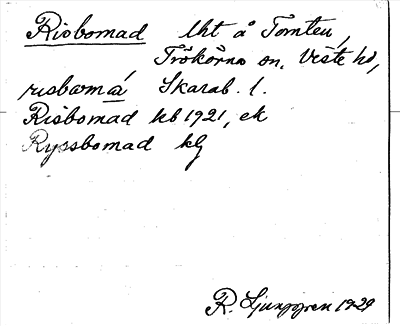 Risbomad lht å Tomten,
Trökörna sn. Viste hd,
risbomá Skarab. l.
Risbomad kb 1921, ek
Ryssbomad kg
R. Ljunggren 1929